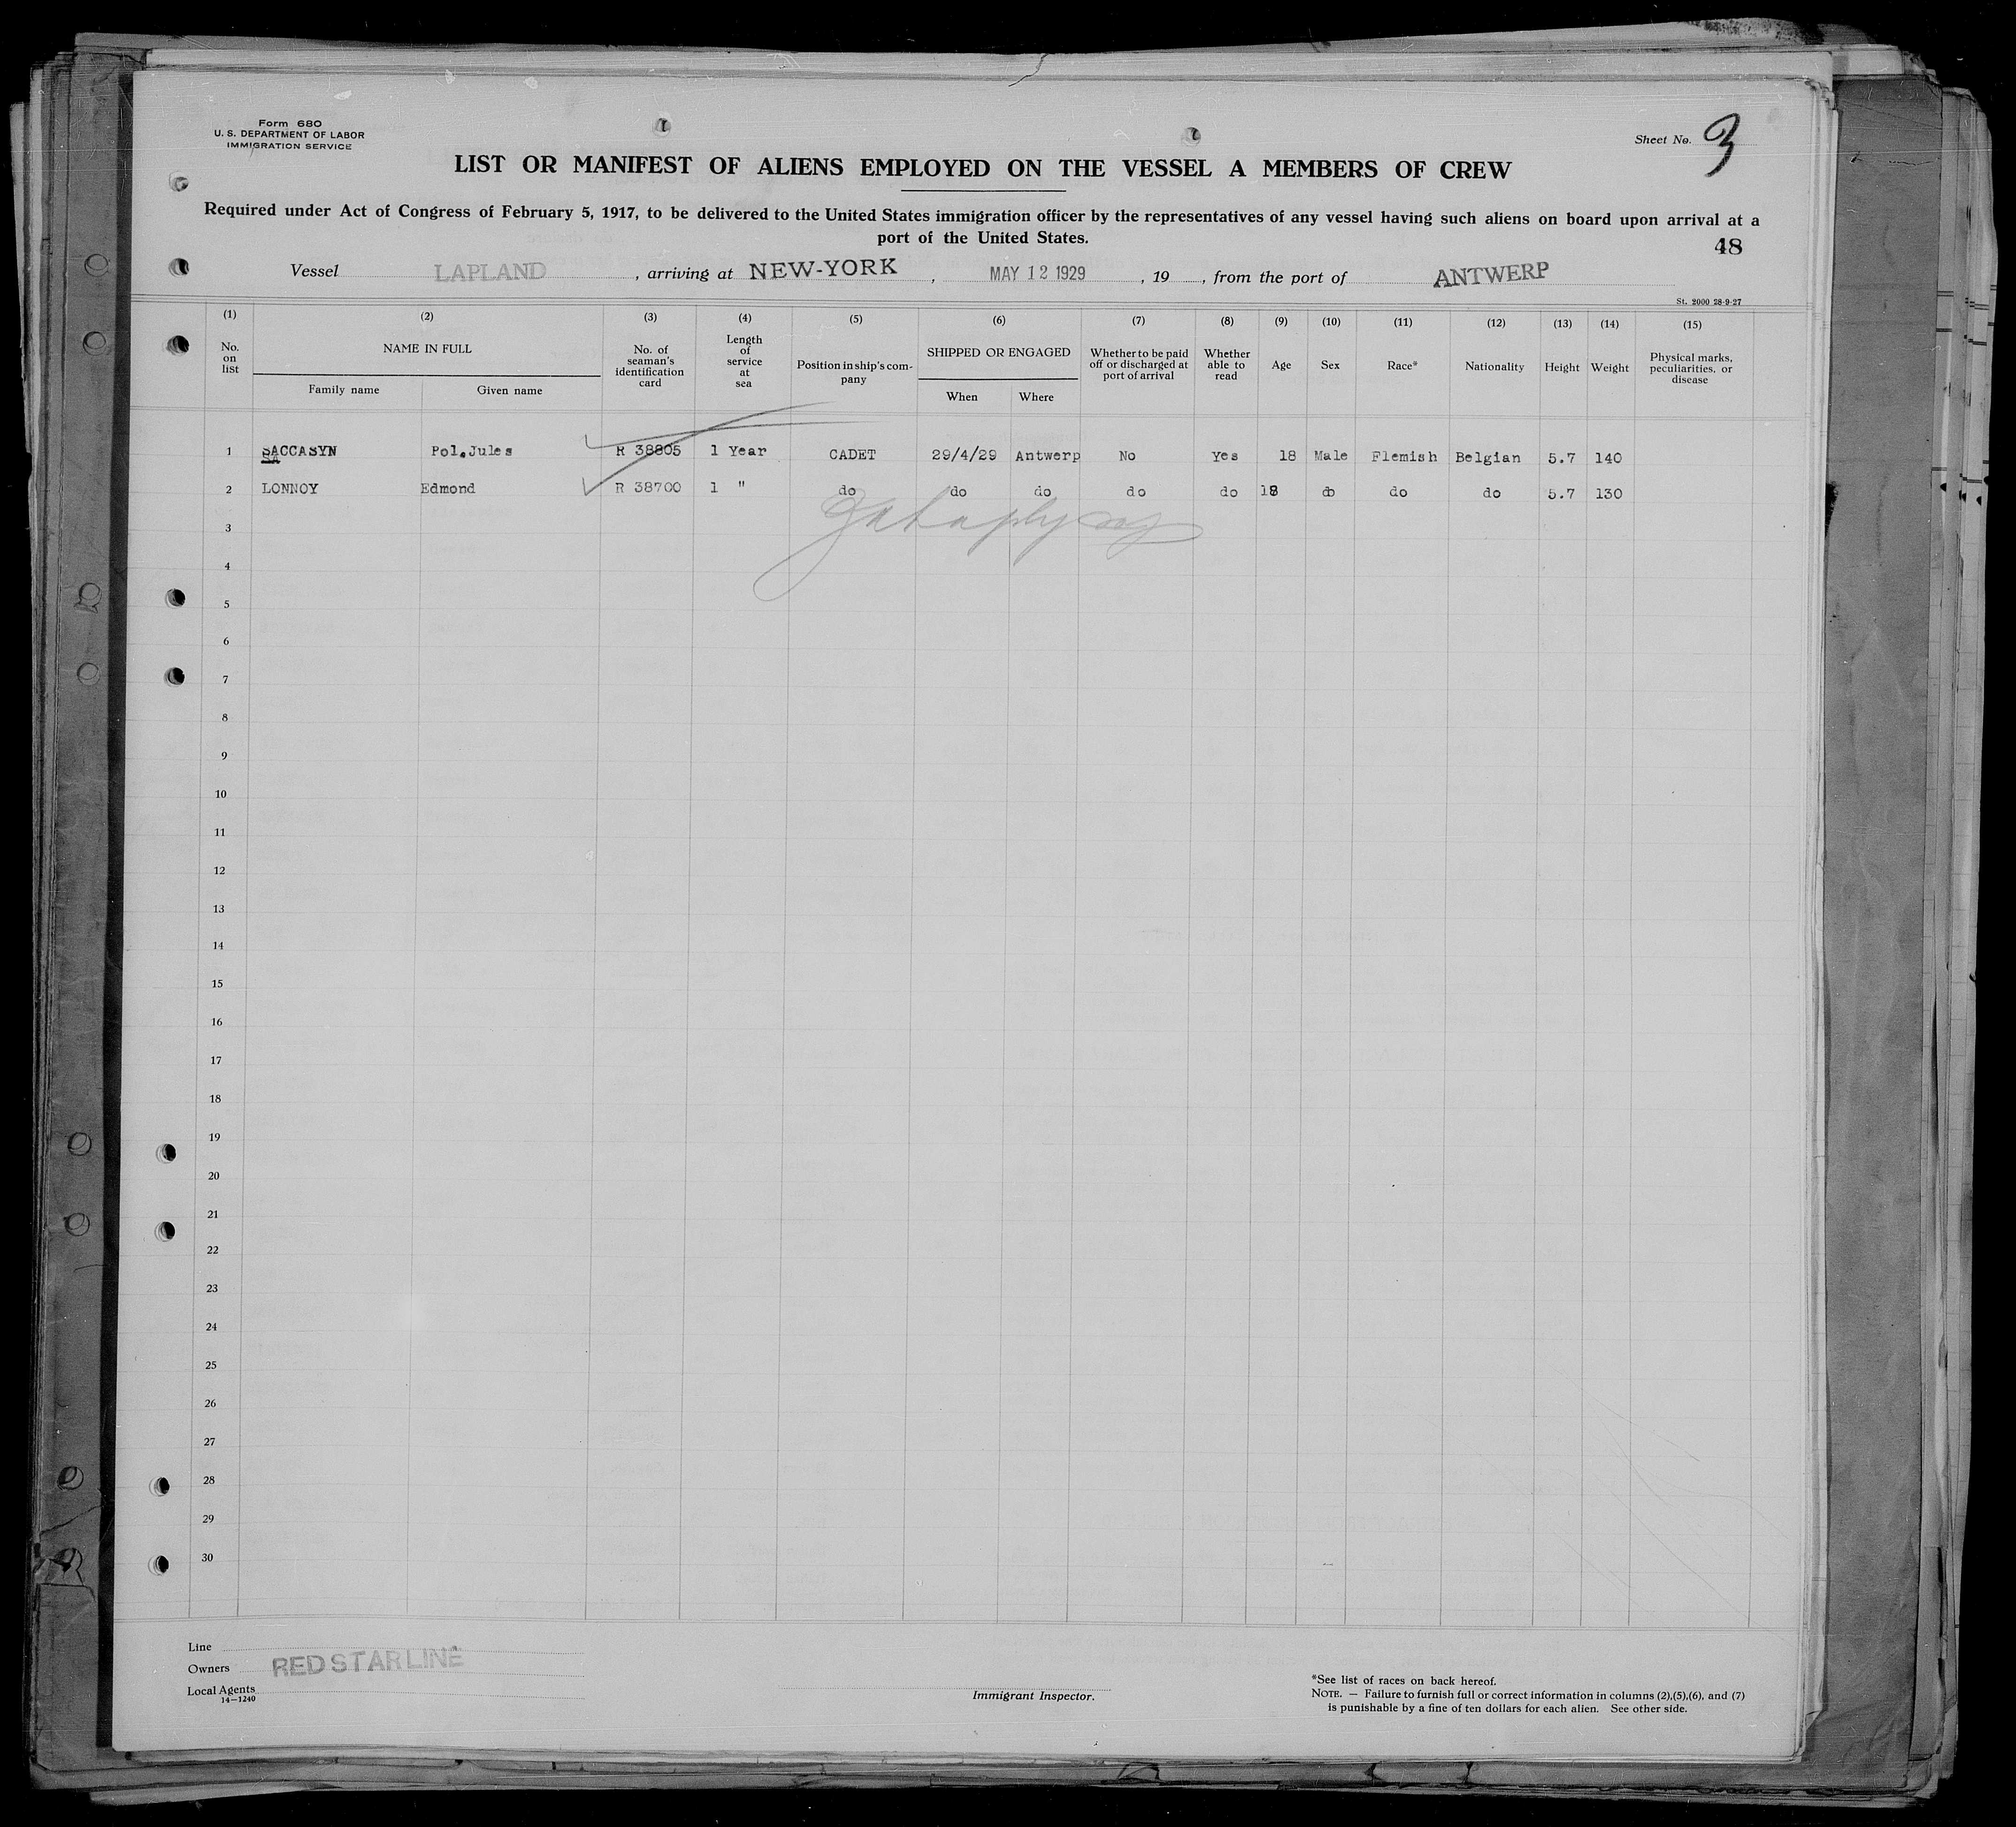 Form 680
U. S. DEPARTMENT OF LABOR
IMMIGRATION SERVICE
Sheet No. 3
LIST OR MANIFEST OF ALIENS EMPLOYED ON THE VESSEL A MEMBERS OF CREW
Required under Act of Congress of February 5, 1917, to be delivered to the United States immigration officer by the representatives of any vessel having such aliens on board upon arrival at a
port of the United States.
48
Vessel LAPLAND, arriving at NEW-YORK, MAY 12 1929, 19 , from the port of ANTWERP
St. 2000 28-9-27
(1) (2) (3) (4) (5) (6) (7) (8) (9) (10) (11) (12) (13) (14) (15)
No. on list NAME IN FULL Family name Given name No. of seaman's identification card Length of service at sea Position in ship's com- pany SHIPPED OR ENGAGED When Where Whether to be paid off or discharged at port of arrival Whether able to read Age Sex Race* Nationality Height Weight Physical marks, peculiarities, or disease
1 SACCASYN Pol.Jules R 38805 1 Year CADET 29/4/29 Antwerp No Yes 18 Male Flemish Belgian 5.7 140
SA
2 LONNOY Edmond R 38700 1 " do do do do do 18 do do do 5.7 130
3
4
5
6
7
8
9
10
11
12
13
14
15
16
17
18
19
20
21
22
23
24
25
26
27
28
29
30
Line
Owners RED STAR LINE
Local Agents
14—1240
Immigrant Inspector.
*See list of races on back hereof.
NOTE. — Failure to furnish full or correct information in columns (2),(5),(6), and (7)
is punishable by a fine of ten dollars for each alien. See other side.